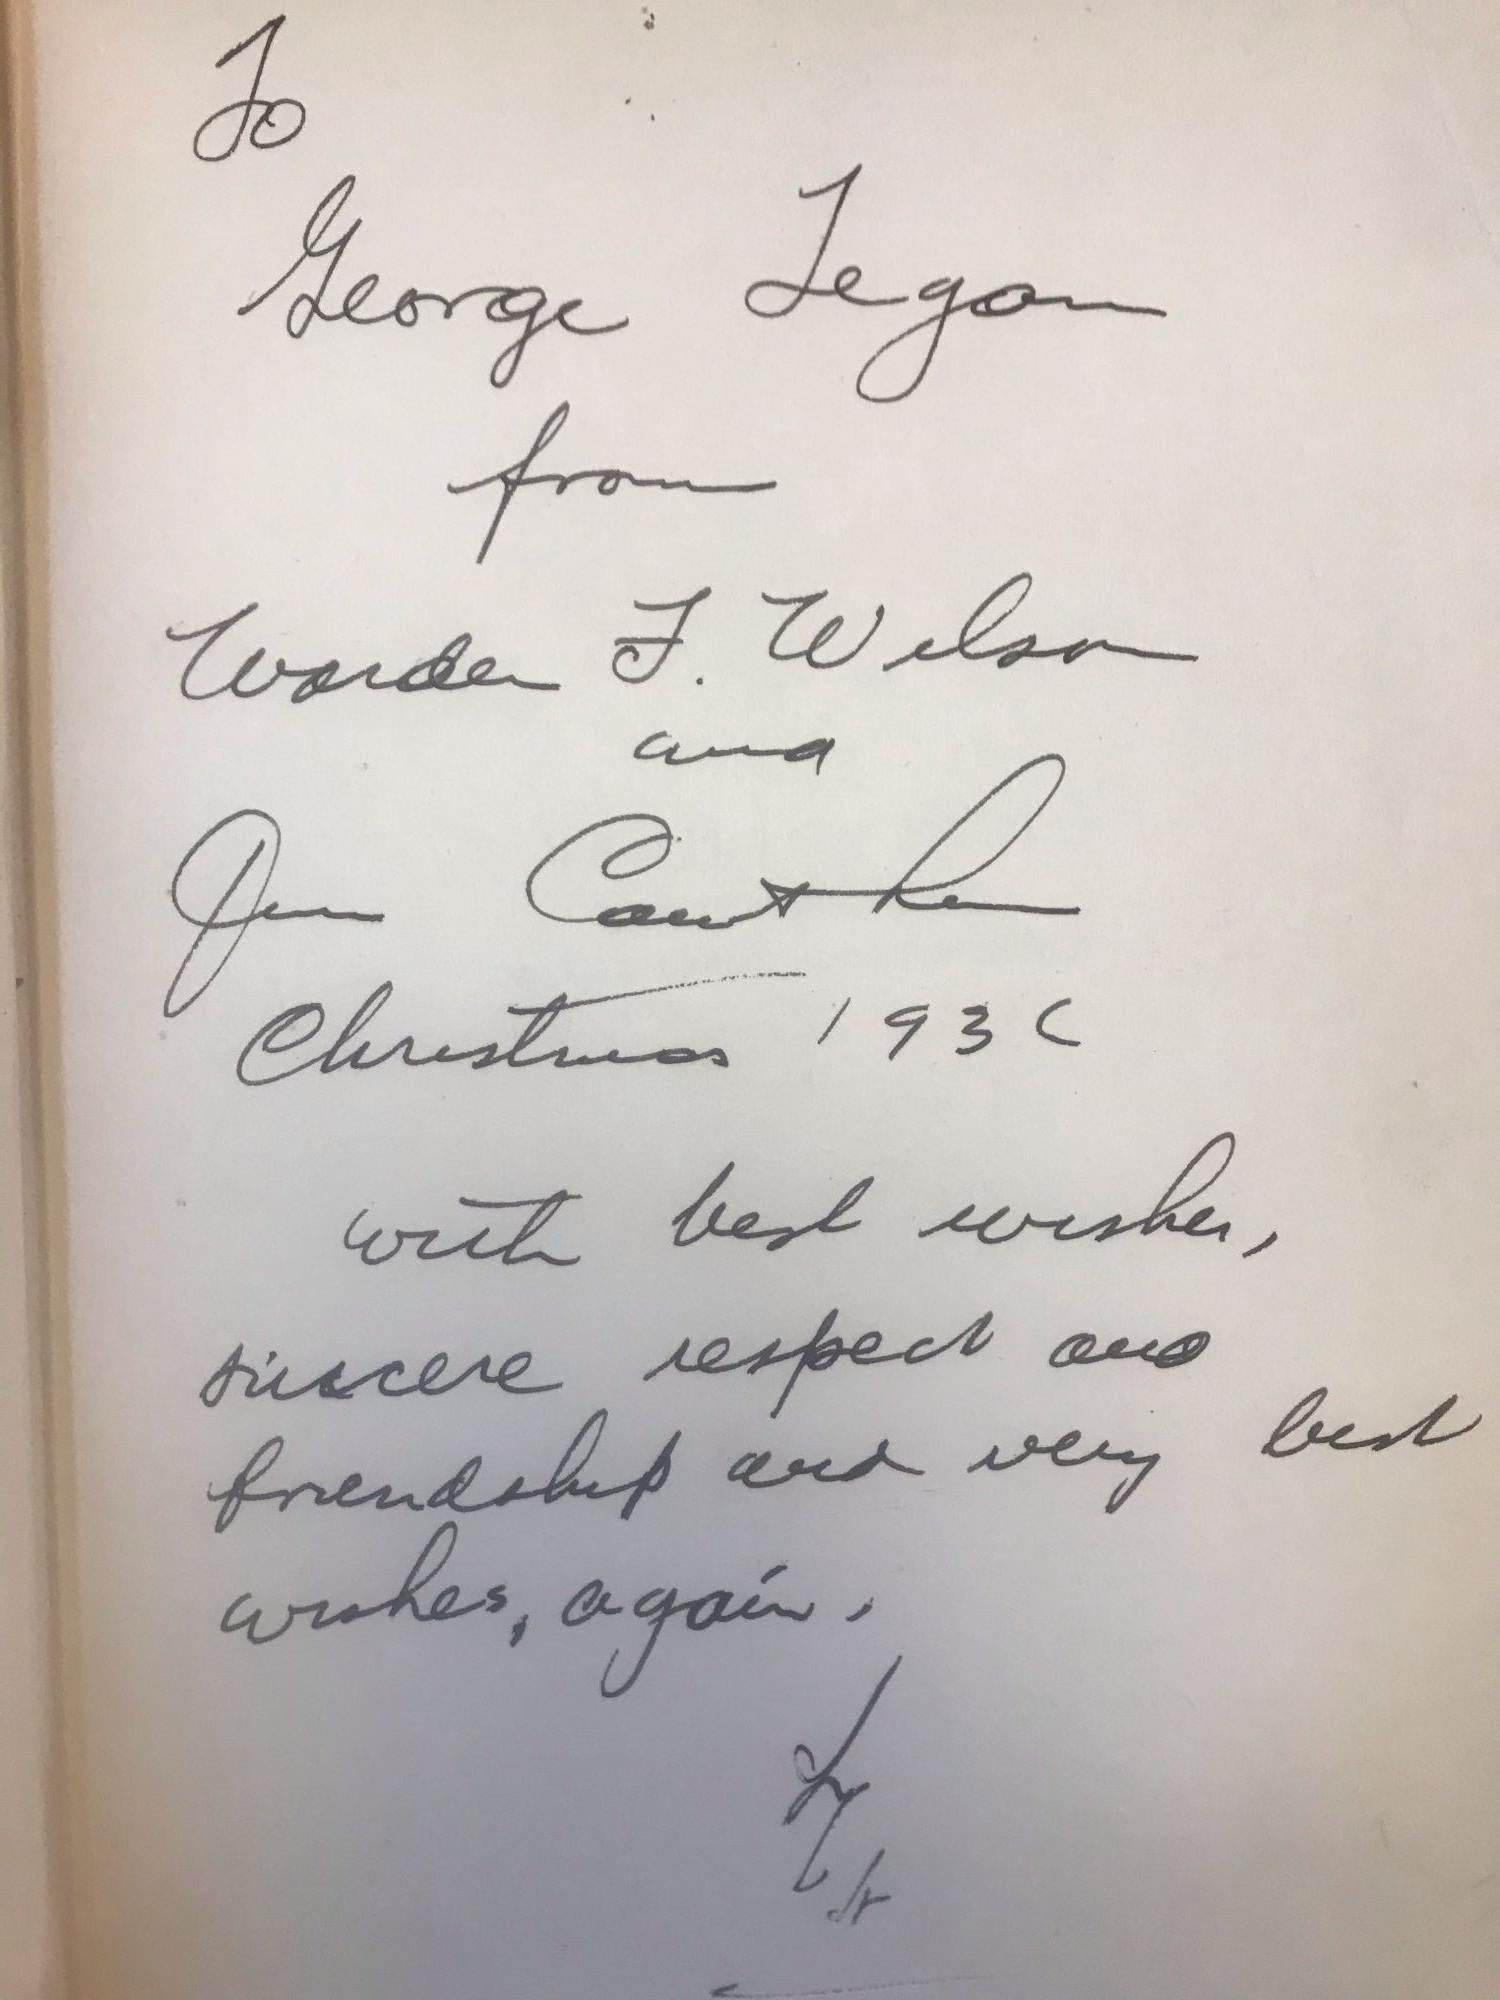 To
George Tegan
from
Warden F. Wilson
and
Jim
Christmas 1936
with best wishes,
sincere respect and
friendship and very best
wishes, again.